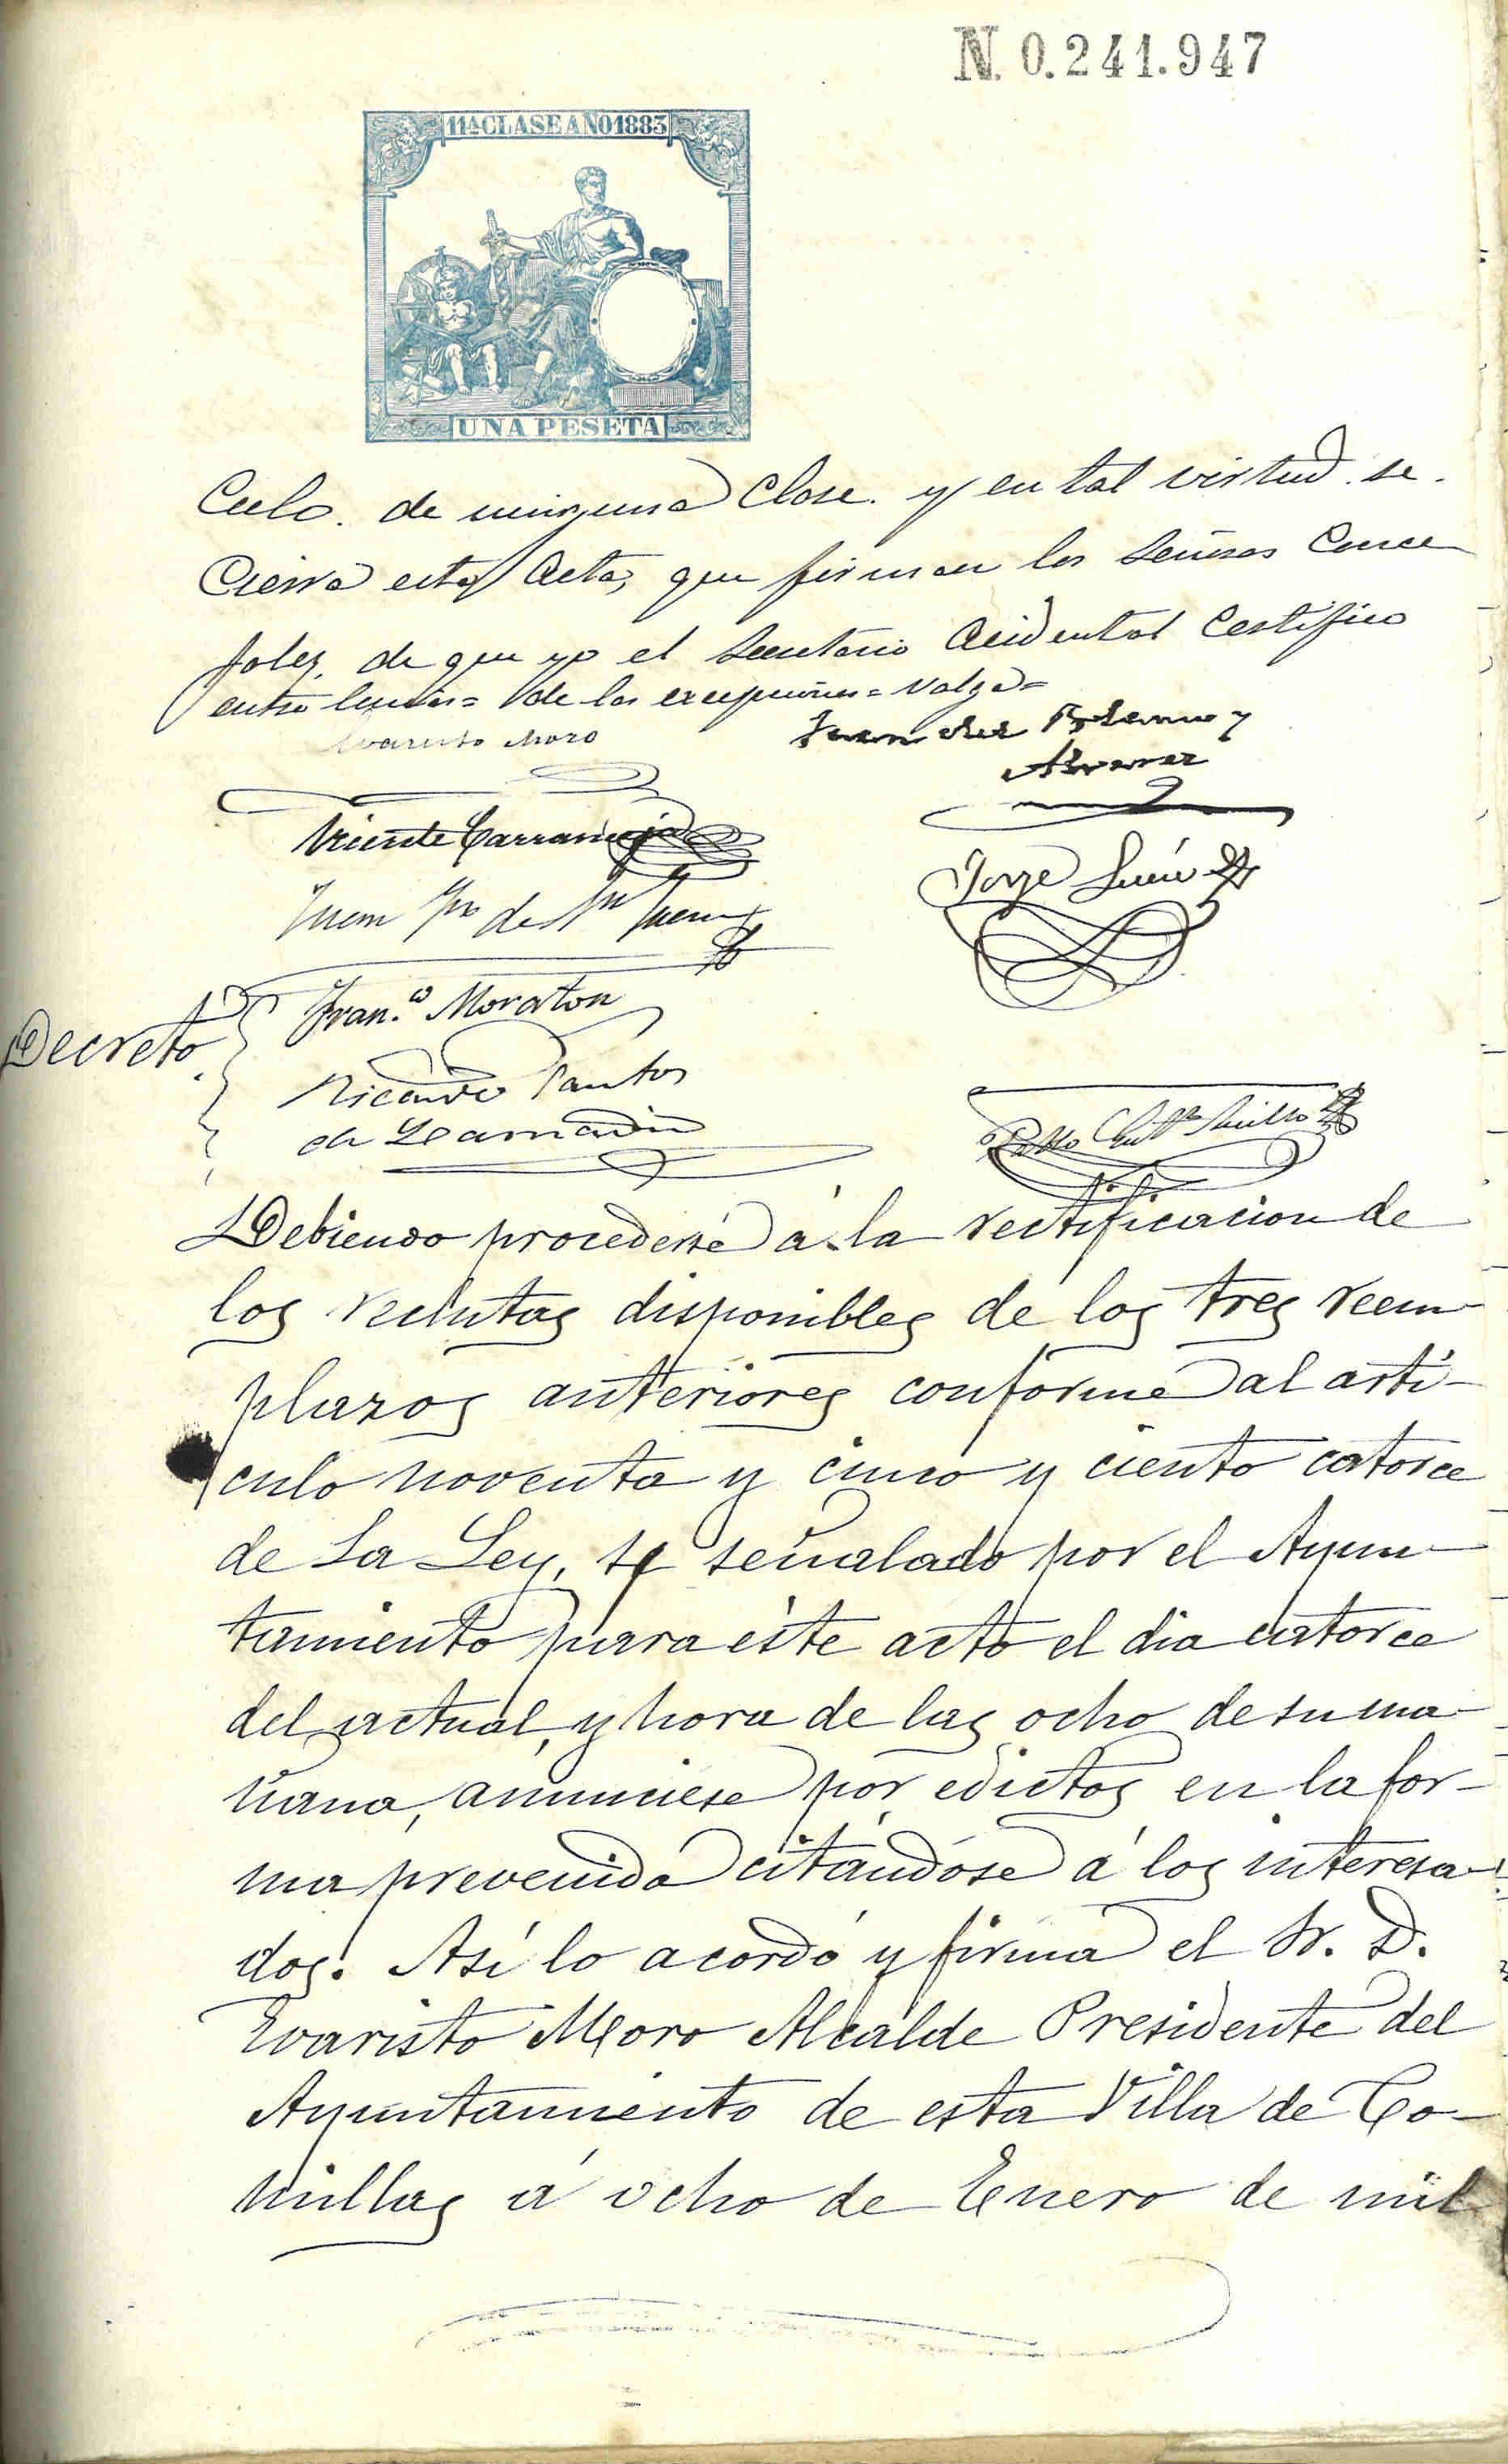 N. 0.241.947
11ª CLASE AÑO 1883
UNA PESETA
Culo. de ninguna Clase. y en tal virtud se.
Cierra esta Acta, que firman los Señores Conce
jales, de que yo el Secretario Acidental Certifico
entre lineas= de las excepciones= Valga=
Evaristo Moro
Juan del
Vicente Carranceja
Jorge
Juan de
Fran.co Moraton
Decreto.
Ricardo Santos
de Lamadrid
Pablo
Debiendo procederse á la rectificacion de
los reclutas disponibles de los tres reem-
plazos anteriores conforme al artí-
culo noventa y cinco y ciento catorce
de La Ley, se señalado por el Ayun-
tamiento para éste acto el dia catorce
del actual, y hora de las ocho de su ma-
ñana, anunciese por edictos en la for-
ma prevenida citándose á los interesa-
dos. Así lo acordó y firma el Sr. D.
Evaristo Moro Alcalde Presidente del
Ayuntamiento de esta Villa de Co-
millas á ocho de Enero de mil